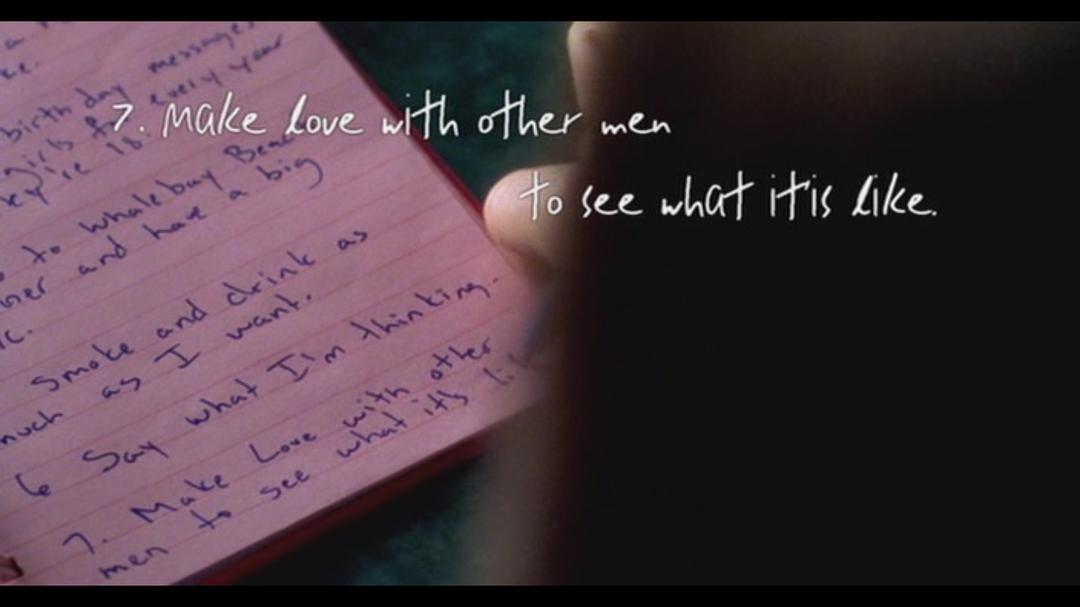 7. Make love with other men
to see what it'is like.
ke.
birthday messages
girls for every year
they're 18.
to whalebay Beach
and have a big
Smoke and drink as
much as I want.
6 Say what I'm thinking.
7. Make Love with other
men to see what it's li